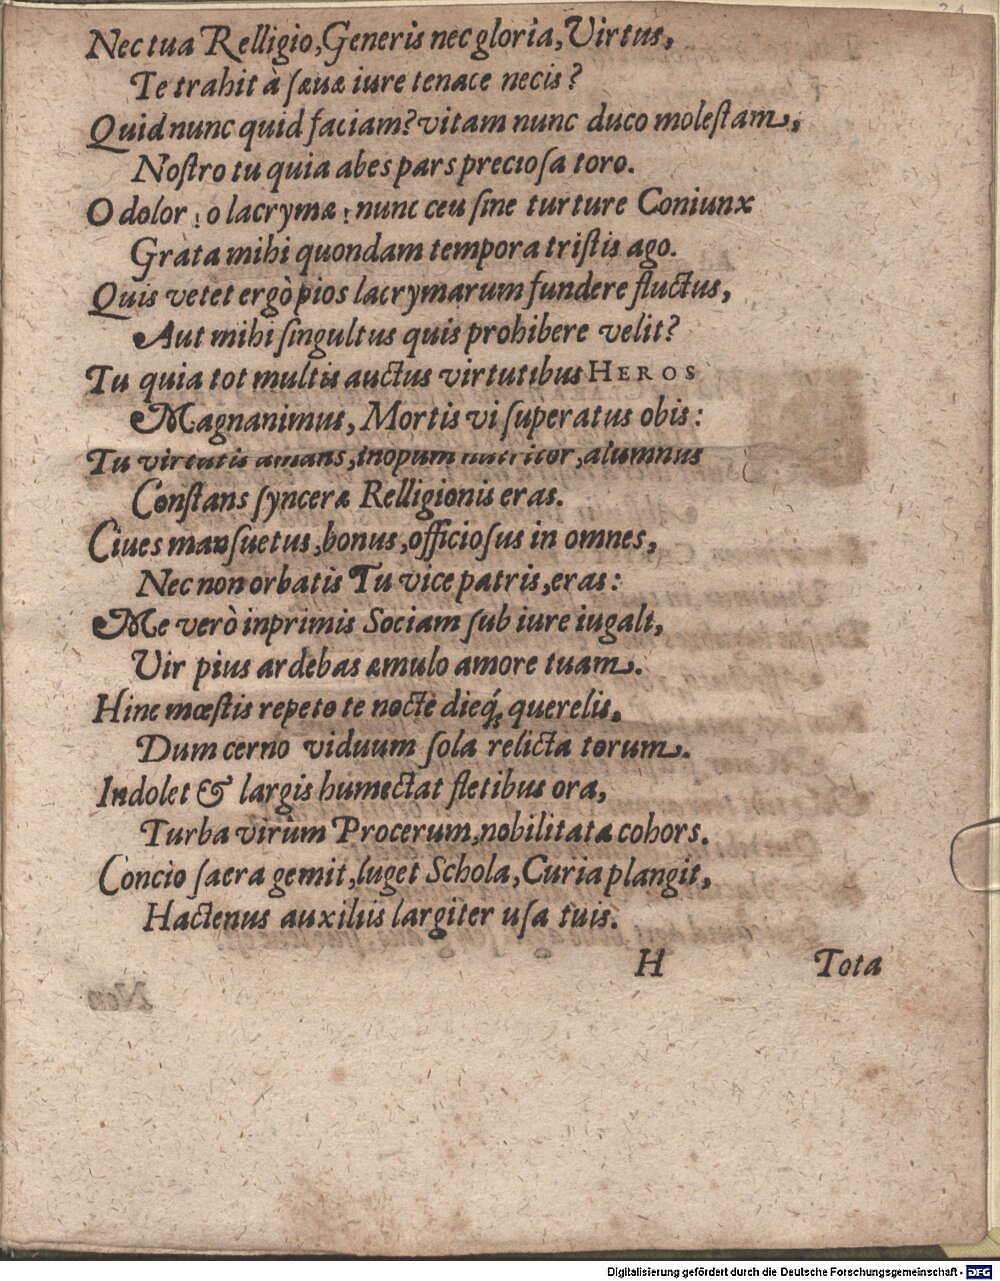 Nec tua Relligio, Generis nec gloria, Virtus,
Te trahit à ſæuæ iure tenace necis?
Quid nunc quid faciam? vitam nunc duco moleſtam,
Noſtro tu quia abes pars precioſa toro.
O dolor! o lacrymæ! nunc ceu ſine turture Coniunx
Grata mihi quondam tempora triſtis ago.
Quis vetet ergò pios lacrymarum fundere fluctus,
Aut mihi ſingultus quis prohibere velit?
Tu quia tot multis auctus virtutibus HEROS
Magnanimus, Mortis vi ſuperatus obis:
Tu virtutis amans, inopum nutritor, alumnus
Conſtans ſynceræ Relligionis eras.
Ciues manſuetus, bonus, officioſus in omnes,
Nec non orbatis Tu vice patris, eras:
Me verò inprimis Sociam ſub iure iugali,
Vir pius ardebas æmulo amore tuam.
Hinc mœſtis repeto te nocte dieq́; querelis,
Dum cerno viduum ſola relicta torum.
Indolet & largis humectat fletibus ora,
Turba virûm Procerum, nobilitata cohors.
Concio ſacra gemit, luget Schola, Curia plangit,
Hactenus auxiliis largiter uſa tuis.
H Tota
Digitalisierung gefördert durch die Deutsche Forschungsgemeinschaft - DFG